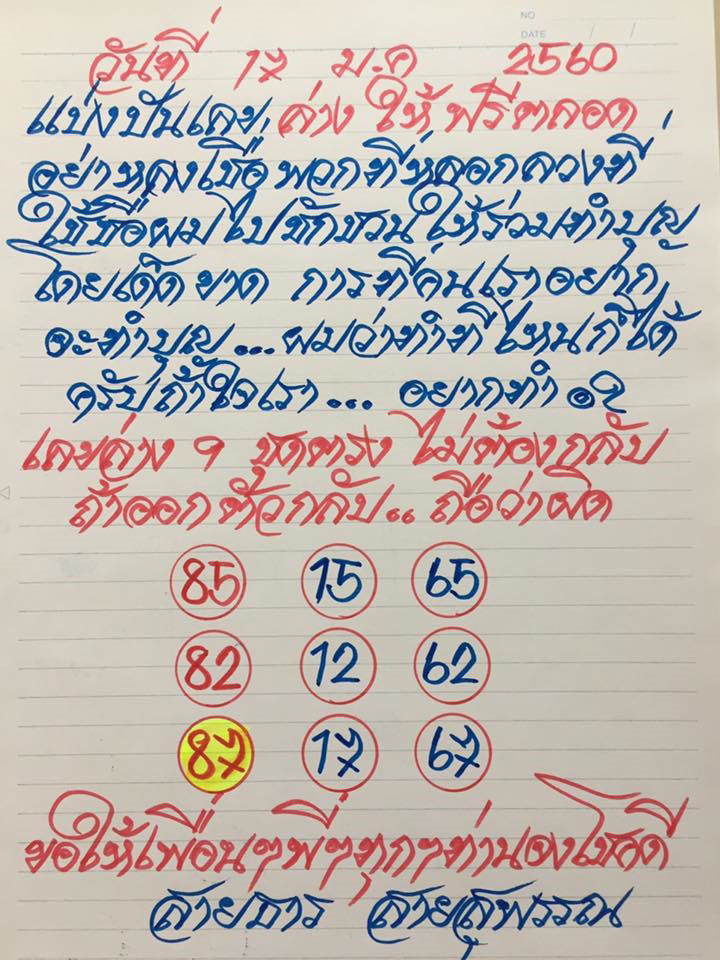 NO
DATE / /
วันที่ 17 ม.ค 2560
แบ่งปันเลข ล่าง ให้ ฟรีตลอด
อย่าหลงเชื่อ พวกที่หลอกลวงที่
ใช้ชื่อผมไปชักชวน ให้ร่วมทำบุญ
โดยเด็ดขาด การที่คนเราอยาก
จะทำบุญ... ผมว่าทำที่ไหนก็ได้
ครับถ้าใจเรา... อยากทำ
เลขล่าง 9 ชุดตรง ไม่ต้องกลับ
ถ้าออกตัวกลับ.. ถือว่าผิด
85 15 65
82 12 62
87 17 67
ขอให้เพื่อนๆพี่ๆทุกๆท่านจงโชคดี
สายธาร สายสุพรรณ